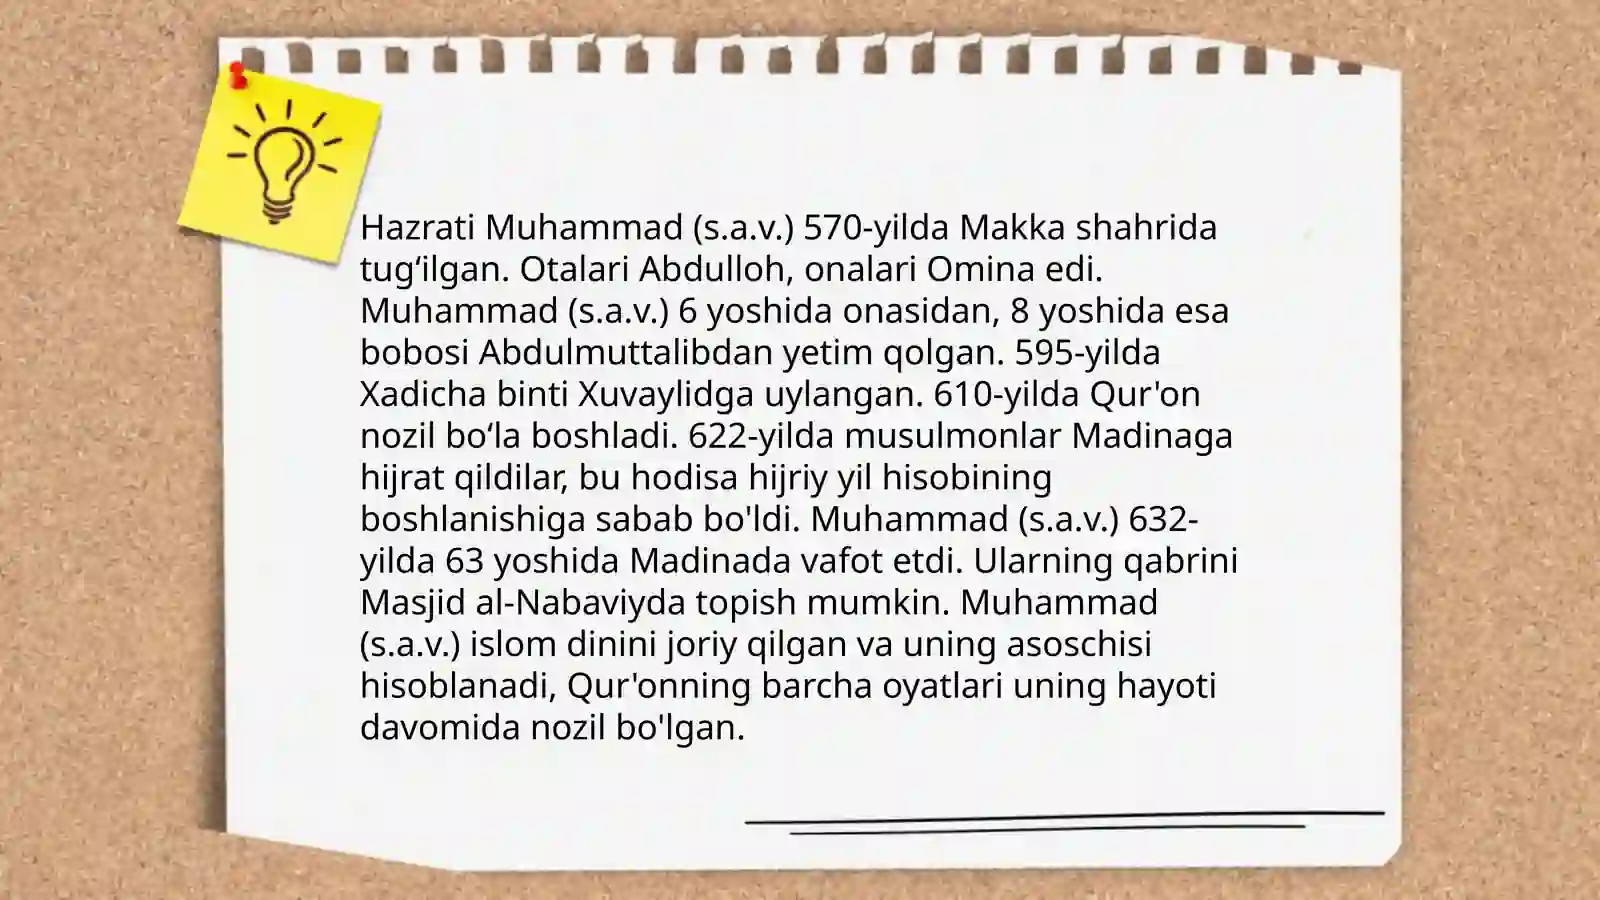 Hazrati Muhammad (s.a.v.) 570-yilda Makka shahrida
tug‘ilgan. Otalari Abdulloh, onalari Omina edi.
Muhammad (s.a.v.) 6 yoshida onasidan, 8 yoshida esa
bobosi Abdulmuttalibdan yetim qolgan. 595-yilda
Xadicha binti Xuvaylidga uylangan. 610-yilda Qur'on
nozil bo‘la boshladi. 622-yilda musulmonlar Madinaga
hijrat qildilar, bu hodisa hijriy yil hisobining
boshlanishiga sabab bo'ldi. Muhammad (s.a.v.) 632-
yilda 63 yoshida Madinada vafot etdi. Ularning qabrini
Masjid al-Nabaviyda topish mumkin. Muhammad
(s.a.v.) islom dinini joriy qilgan va uning asoschisi
hisoblanadi, Qur'onning barcha oyatlari uning hayoti
davomida nozil bo'lgan.